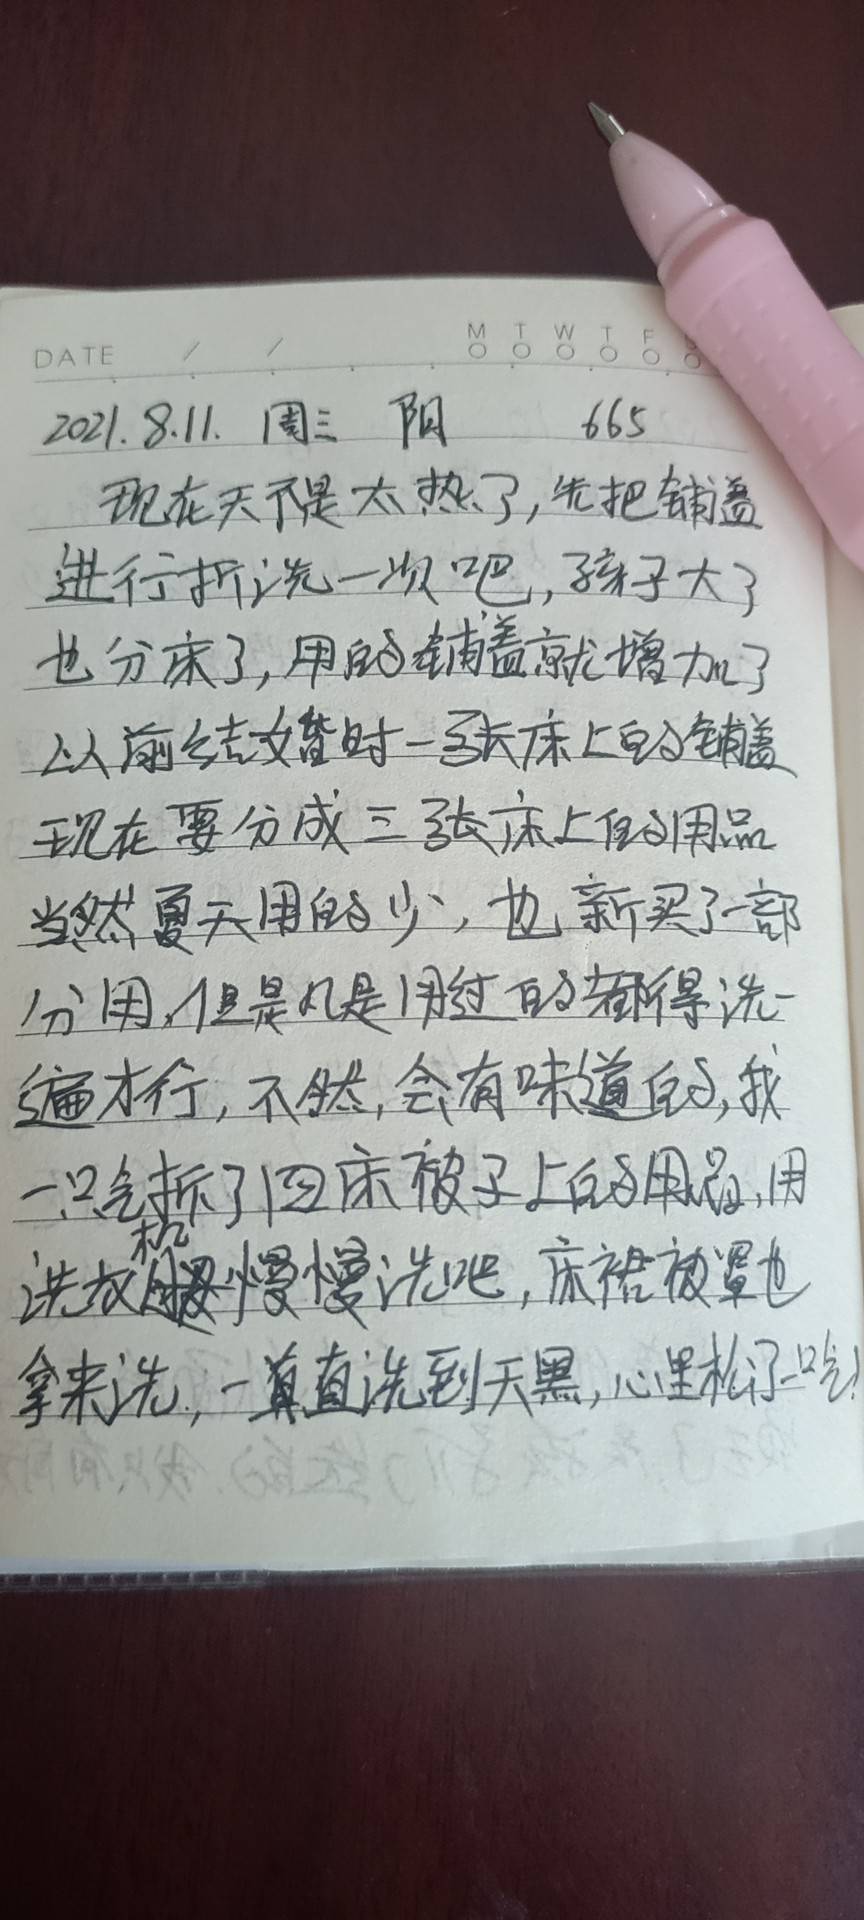 DATE / / M T W T F S
2021.8.11. 周三 阳 665
现在天不是太热了,先把铺盖
进行折洗一次吧,孩子大了
也分床了,用的铺盖就增加了
以前结婚时一张床上的铺盖
现在要分成三张床上的用品
当然夏天用的少,也新买了一部
分用,但是凡是用过的都得洗一
遍才行,不然,会有味道的,我
一口气拆了四床被子上的用品,用
洗衣机慢慢洗吧,床裙被罩也
拿来洗,一直洗到天黑,心里松了一口气!